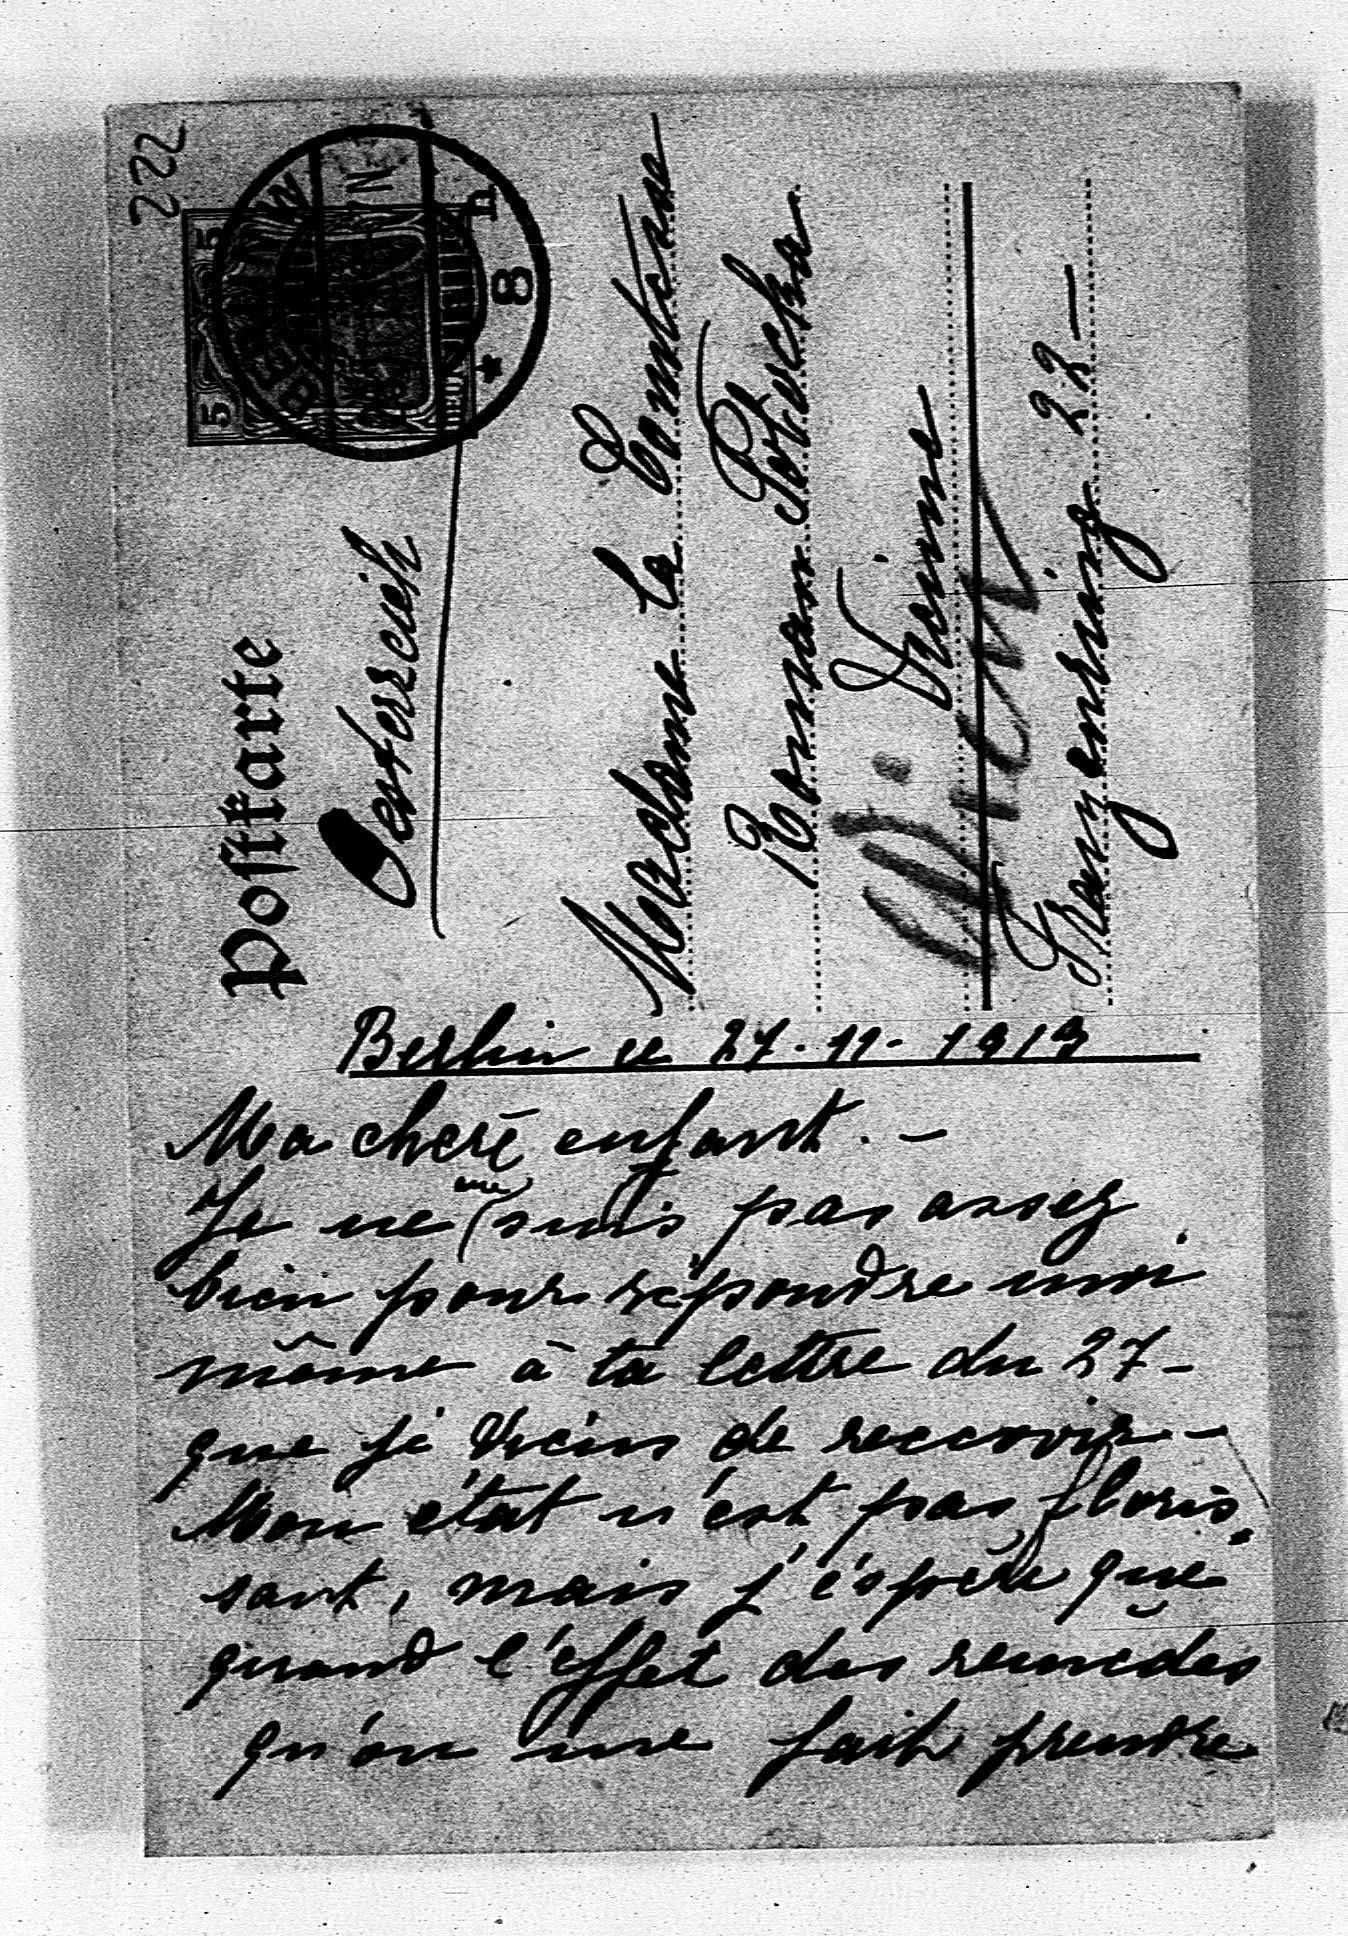 222
5
5
BERLIN
8
Postkarte
Oesterreich
Madame la Comtesse
Roman Potocka
Vienne
Wien
Franzensring 22 —
Berlin le 27 · 11 · 1913
Ma chere enfant. —
Je ne suis pas assez
bien pour répondre moi
même à ta lettre du 27 —
que je viens de recevoir —
Mon état n'est pas floris
sant, mais j'éspère que
quand l'effet des remedes
qu'on me fait prendre